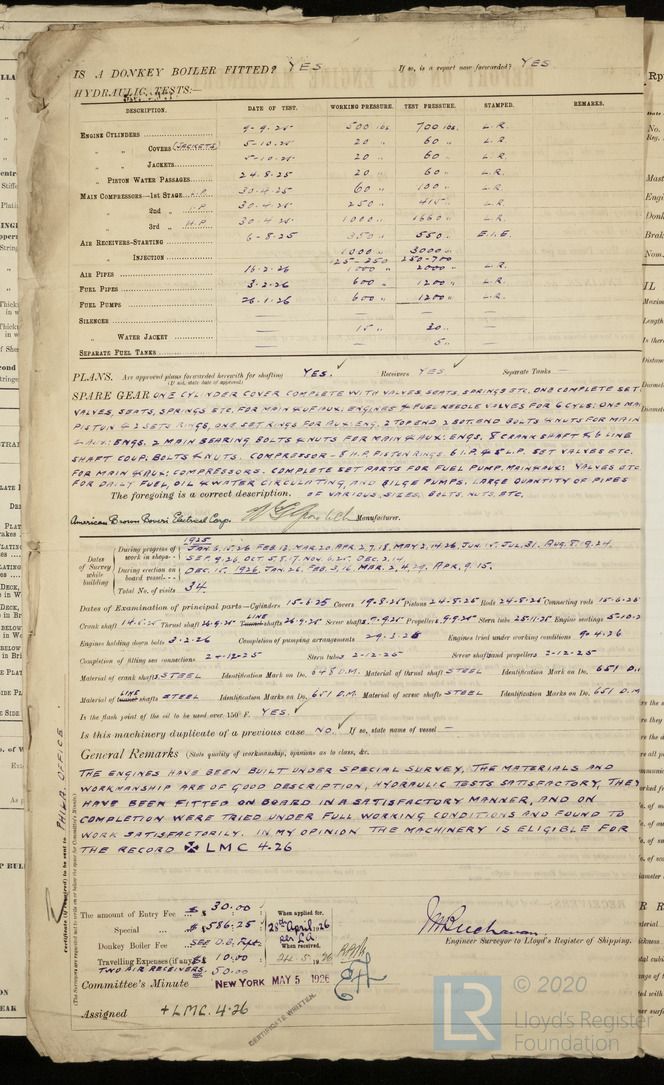 IS A DONKEY BOILER FITTED? YES If so, is a report now forwarded? YES
HYDRAULIC TESTS:—
DESCRIPTION. DATE OF TEST. WORKING PRESSURE. TEST PRESSURE. STAMPED. REMARKS.
ENGINE CYLINDERS 9-9-25 500 lbs. 700 lbs. L.R.
" " COVERS (JACKETS) 5-10-25 20 " 60 " L.R.
" " JACKETS 5-10-25 20 " 60 " L.R.
" PISTON WATER PASSAGES 24.8.25 20 " 60 " L.R.
MAIN COMPRESSORS—1st STAGE 30.4.25 60 " 100 " L.R.
" 2nd " I.P 30.4.25 250 " 415 " L.R.
" 3rd " H.P 30.4.25 1000 " L.R.
AIR RECEIVERS—STARTING 6-8-25 350 " 550 " E.I.E.
" INJECTION 1000 " 3000 "
AIR PIPES 16.2.26 25-250 250-700 1000 " 2000 " L.R.
FUEL PIPES 3.2.26 600 " 1200 " L.R.
FUEL PUMPS 26.1.26 600 " 1200 " L.R.
SILENCER — — — —
" WATER JACKET — 15 " 30 " —
SEPARATE FUEL TANKS — 5 " —
PLANS. Are approved plans forwarded herewith for shafting YES. Receivers YES Separate Tanks —
(If not, state date of approval)
SPARE GEAR ONE CYLINDER COVER COMPLETE WITH VALVES, SEATS, SPRINGS ETC. ONE COMPLETE SET
VALVES, SEATS, SPRINGS ETC. FOR MAIN & OF AUX. ENGINES & FUEL NEEDLE VALVES FOR 6 CYLS. ONE MAIN
PISTON & 2 SETS RINGS, ONE SET RINGS FOR AUX: ENG. 2 TOP END 2 BOT. END BOLTS & NUTS FOR MAIN
& AUX: ENGS. 2 MAIN BEARING BOLTS & NUTS FOR MAIN & AUX: ENGS. 8 CRANK SHAFT & 6 LINE
SHAFT COUP. BOLTS & NUTS. COMPRESSOR – 8 H.P. PISTON RINGS 6 I.P. & 8 L.P. SET VALVES ETC.
FOR MAIN & AUX: COMPRESSORS. COMPLETE SET PARTS FOR FUEL PUMP, MAIN & AUX: VALVES ETC
FOR DAILY FUEL, OIL & WATER CIRCULATING, AND BILGE PUMPS. LARGE QUANTITY OF PIPES
The foregoing is a correct description. OF VARIOUS SIZES, BOLTS, NUTS, ETC.
American Brown Boveri Electrical Corp. Manufacturer.
Dates of Survey while building
During progress of work in shops-- 1925 JAN. 5, 15, 26 FEB. 12, MAR. 20, APR. 2, 7, 18, MAY 2, 14, 26, JUN. 15, JUL. 31, AUG. 8, 19, 24,
SEP. 9, 26 OCT. 5, 8, 17, NOV. 6, 25, DEC. 2, 14,
During erection on board vessel--- DEC. 15, 1926, JAN. 26, FEB. 3, 16, MAR. 2, 4, 29, APR. 9, 15.
Total No. of visits 34.
Dates of Examination of principal parts—Cylinders 15-6-25 Covers 19-8-25 Pistons 24-8-25 Rods 24-8-25 Connecting rods 15-6-25
Crank shaft Thrust shaft 26.9.25 LINE shafts 26.9.25 Screw shaft Propellers 9.9.25 Stern tube 25.11.25 Engine seatings 5-10.2
Engines holding down bolts 3.2.26 Completion of pumping arrangements 29.3.26 Engines tried under working conditions 9-4.26
Completion of fitting sea connections 2-12-25 Stern tubes 2-12-25 Screw shaft and propellers 2-12-25
Material of crank shaft STEEL Identification Mark on Do. 648 D.M. Material of thrust shaft STEEL Identification Mark on Do. 651 D.
Material of LINE shafts STEEL Identification Marks on Do. 651 D.M. Material of screw shafts STEEL Identification Marks on Do. 651 D.M
Is the flash point of the oil to be used over 150° F. YES.
Is this machinery duplicate of a previous case NO. If so, state name of vessel —
General Remarks (State quality of workmanship, opinions as to class, &c.
THE ENGINES HAVE BEEN BUILT UNDER SPECIAL SURVEY, THE MATERIALS AND
WORKMANSHIP ARE OF GOOD DESCRIPTION, HYDRAULIC TESTS SATISFACTORY, THEY
HAVE BEEN FITTED ON BOARD IN A SATISFACTORY MANNER, AND ON
COMPLETION WERE TRIED UNDER FULL WORKING CONDITIONS AND FOUND TO
WORK SATISFACTORILY. IN MY OPINION THE MACHINERY IS ELIGIBLE FOR
THE RECORD ✠ LMC 4.26
Certificate (if required) to be sent to PHILA. OFFICE.
(The Surveyors are requested not to write on or below the space for Committee's Minute.)
The amount of Entry Fee $ 30.00
Special $ 586.25
Donkey Boiler Fee SEE D.B. Rept.
Travelling Expenses (if any) $ 10.00
TWO AIR RECEIVERS. 50.00
When applied for,
28th April 1926
per L.A.
When received,
24.5.1926
J. M. Buchanan.
Engineer Surveyor to Lloyd's Register of Shipping.
Committee's Minute NEW YORK MAY 5 1926
Assigned + LMC. 4.26
CERTIFICATE WRITTEN.
LR
© 2020
Lloyd's Register
Foundation